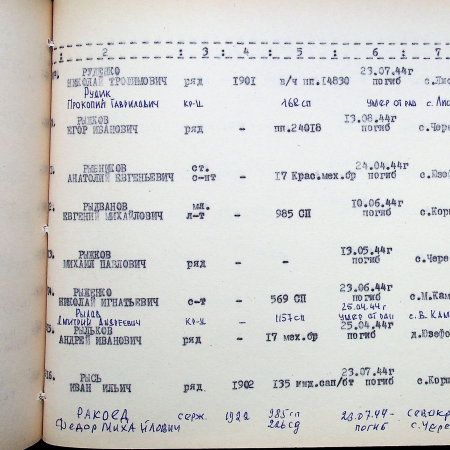 : 2 : 3 : 4 : 5 : 6 : 7
РУДЕНКО 23.07.44г
НИКОЛАЙ ТРОФИМОВИЧ ряд 1901 п/ч пп.14830 погиб
Рудик
Прокопий Гаврилович кр-ц 162 сп умер от ран
РЫЖКОВ 13.08.44г
ЕГОР ИВАНОВИЧ ряд - пп.24018 погиб с.Чере
РЫБНИКОВ ст. 24.04.44г
АНАТОЛИЙ ЕВГЕНЬЕВИЧ с-нт - 17 Крас.мех.бр погиб с.Юзеф
2. РЫДВАНОВ мл. 10.06.44г
ЕВГЕНИЙ МИХАЙЛОВИЧ л-т - 985 СП погиб с.Корм
3. РЫЖКОВ 13.05.44г
МИХАИЛ ПАВЛОВИЧ ряд - - погиб с.Чере
4. РЫЖЕНКО 23.06.44г
НИКОЛАЙ ИГНАТЬЕВИЧ с-т - 569 СП погиб с.М.Кам
Рылов 25.04.44г
Дмитрий Андреевич кр-ц - 1157сп умер от ран с.В.Кам
РЫЛЬКОВ 25.04.44г
АНДРЕЙ ИВАНОВИЧ ряд - 17 мех.бр погиб д.Юзефо
16. РЫСЬ 23.07.44г
ИВАН ИЛЬИЧ ряд 1902 135 инж.сап/бт погиб с.Корж
РАКОЕД серж. 1922 985сп 23.07.44-
Федор Михайлович 226сд погиб с.Чере